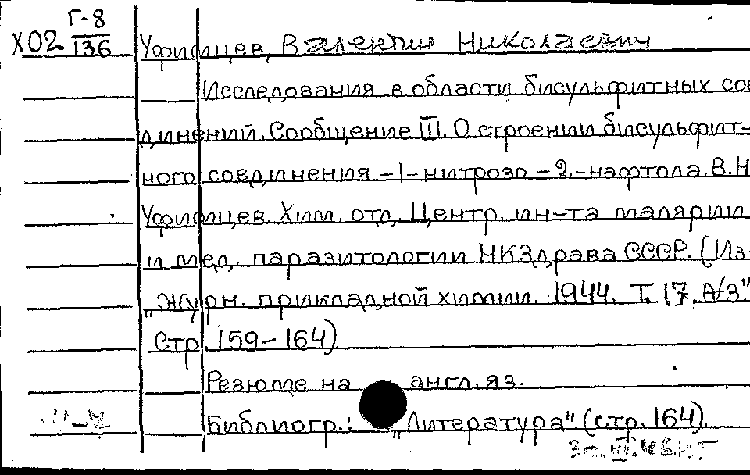 Г-8
Х02 136 Уфимцев, Валентин Николаевич
Исследования в области бисульфитных сое
динений. Сообщение III. О строении бисульфит-
ного соединения -1-нитрозо-2-нафтола. В.Н
Уфимцев. Хим. отд. Центр. ин-та малярии
и мед. паразитологии НКЗдрава СССР. (Из
"Журн. прикладной химии. 1944. Т. 17,
Стр. 159-164)
Резюме на англ. яз.
Библиогр.: "Литература" (стр. 164).